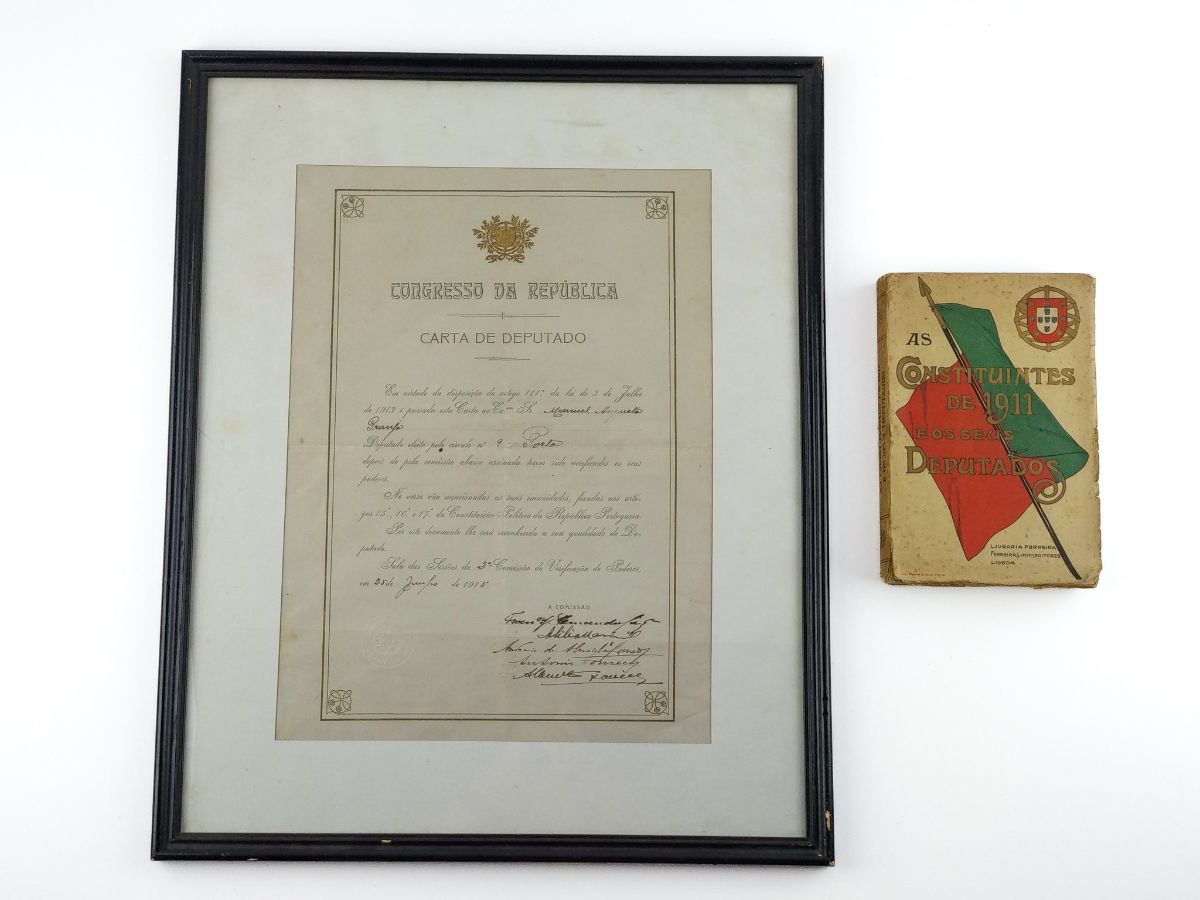 CONGRESSO DA REPÚBLICA
CARTA DE DEPUTADO
Em virtude da disposição do artigo 111º da lei de 3 de Julho
de 1913 é passada esta Carta ao Ex.mo Sr. Manuel Augusto
Granjo
Deputado eleito pelo circulo nº 9 - Porto
depois de pela comissão abaixo assinada terem sido verificados os seus
poderes.
No verso vão mencionadas as suas imunidades, fixadas nos arti-
gos 15º, 16º e 17º da Constituição Política da República Portuguesa.
Por este documento lhe será reconhecida a sua qualidade de De-
putado.
Sala das Sessões da 2ª Comissão de Verificação de Poderes,
em 25 de Junho de 1915
A COMISSÃO
António
António Fonseca
Xavier
AS
CONSTITUINTES
DE 1911
E OS SEUS
DEPUTADOS
LIVRARIA FERREIRA
FERREIRA LIMIT. EDITORES
LISBOA